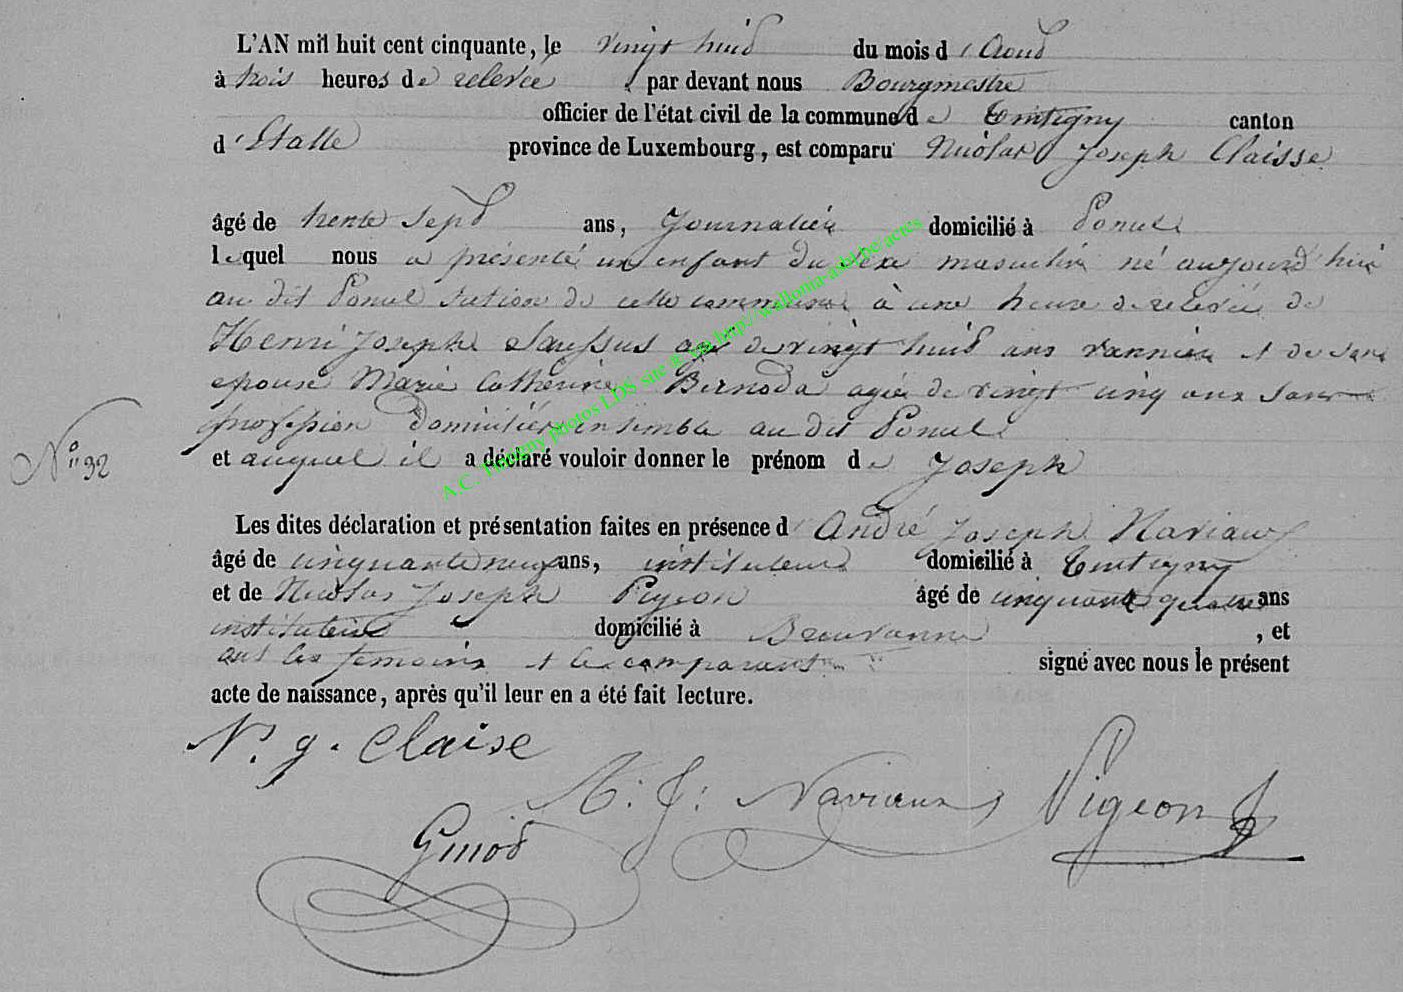 L'AN mil huit cent cinquante, le vingt huit du mois d'Aout
à trois heures de relevée, par devant nous Bourgmestre
officier de l'état civil de la commune de Tintigny canton
d'Etalle province de Luxembourg, est comparu Nicolas Joseph Claisse
âgé de trente sept ans, Journalier domicilié à Ponul
lequel nous a présenté un enfant du sexe masculin né aujourd'hui
au dit Ponul section de cette commune à une heure de relevée de
Henri Joseph Saussus agé de vingt huit ans vannier et de sans
epouse Marie Catherine Bernoda agée de vingt cinq ans sans
profession domiciliés ensemble au dit Ponul
N° 32
et auquel il a déclaré vouloir donner le prénom de Joseph
Les dites déclaration et présentation faites en présence d'André Joseph Naviaux
âgé de cinquante neuf ans, instituteur domicilié à Tintigny
et de Nicolas Joseph Pigeon âgé de cinquante quatre ans
instituteur domicilié à , et
ont les temoins et le comparant signé avec nous le présent
acte de naissance, après qu'il leur en a été fait lecture.
N. J. Claise
A. J. Naviaux
Pigeon
Guiot
A.C. Tintigny photos LDS site & via http://wallonia-asbl.be/actes